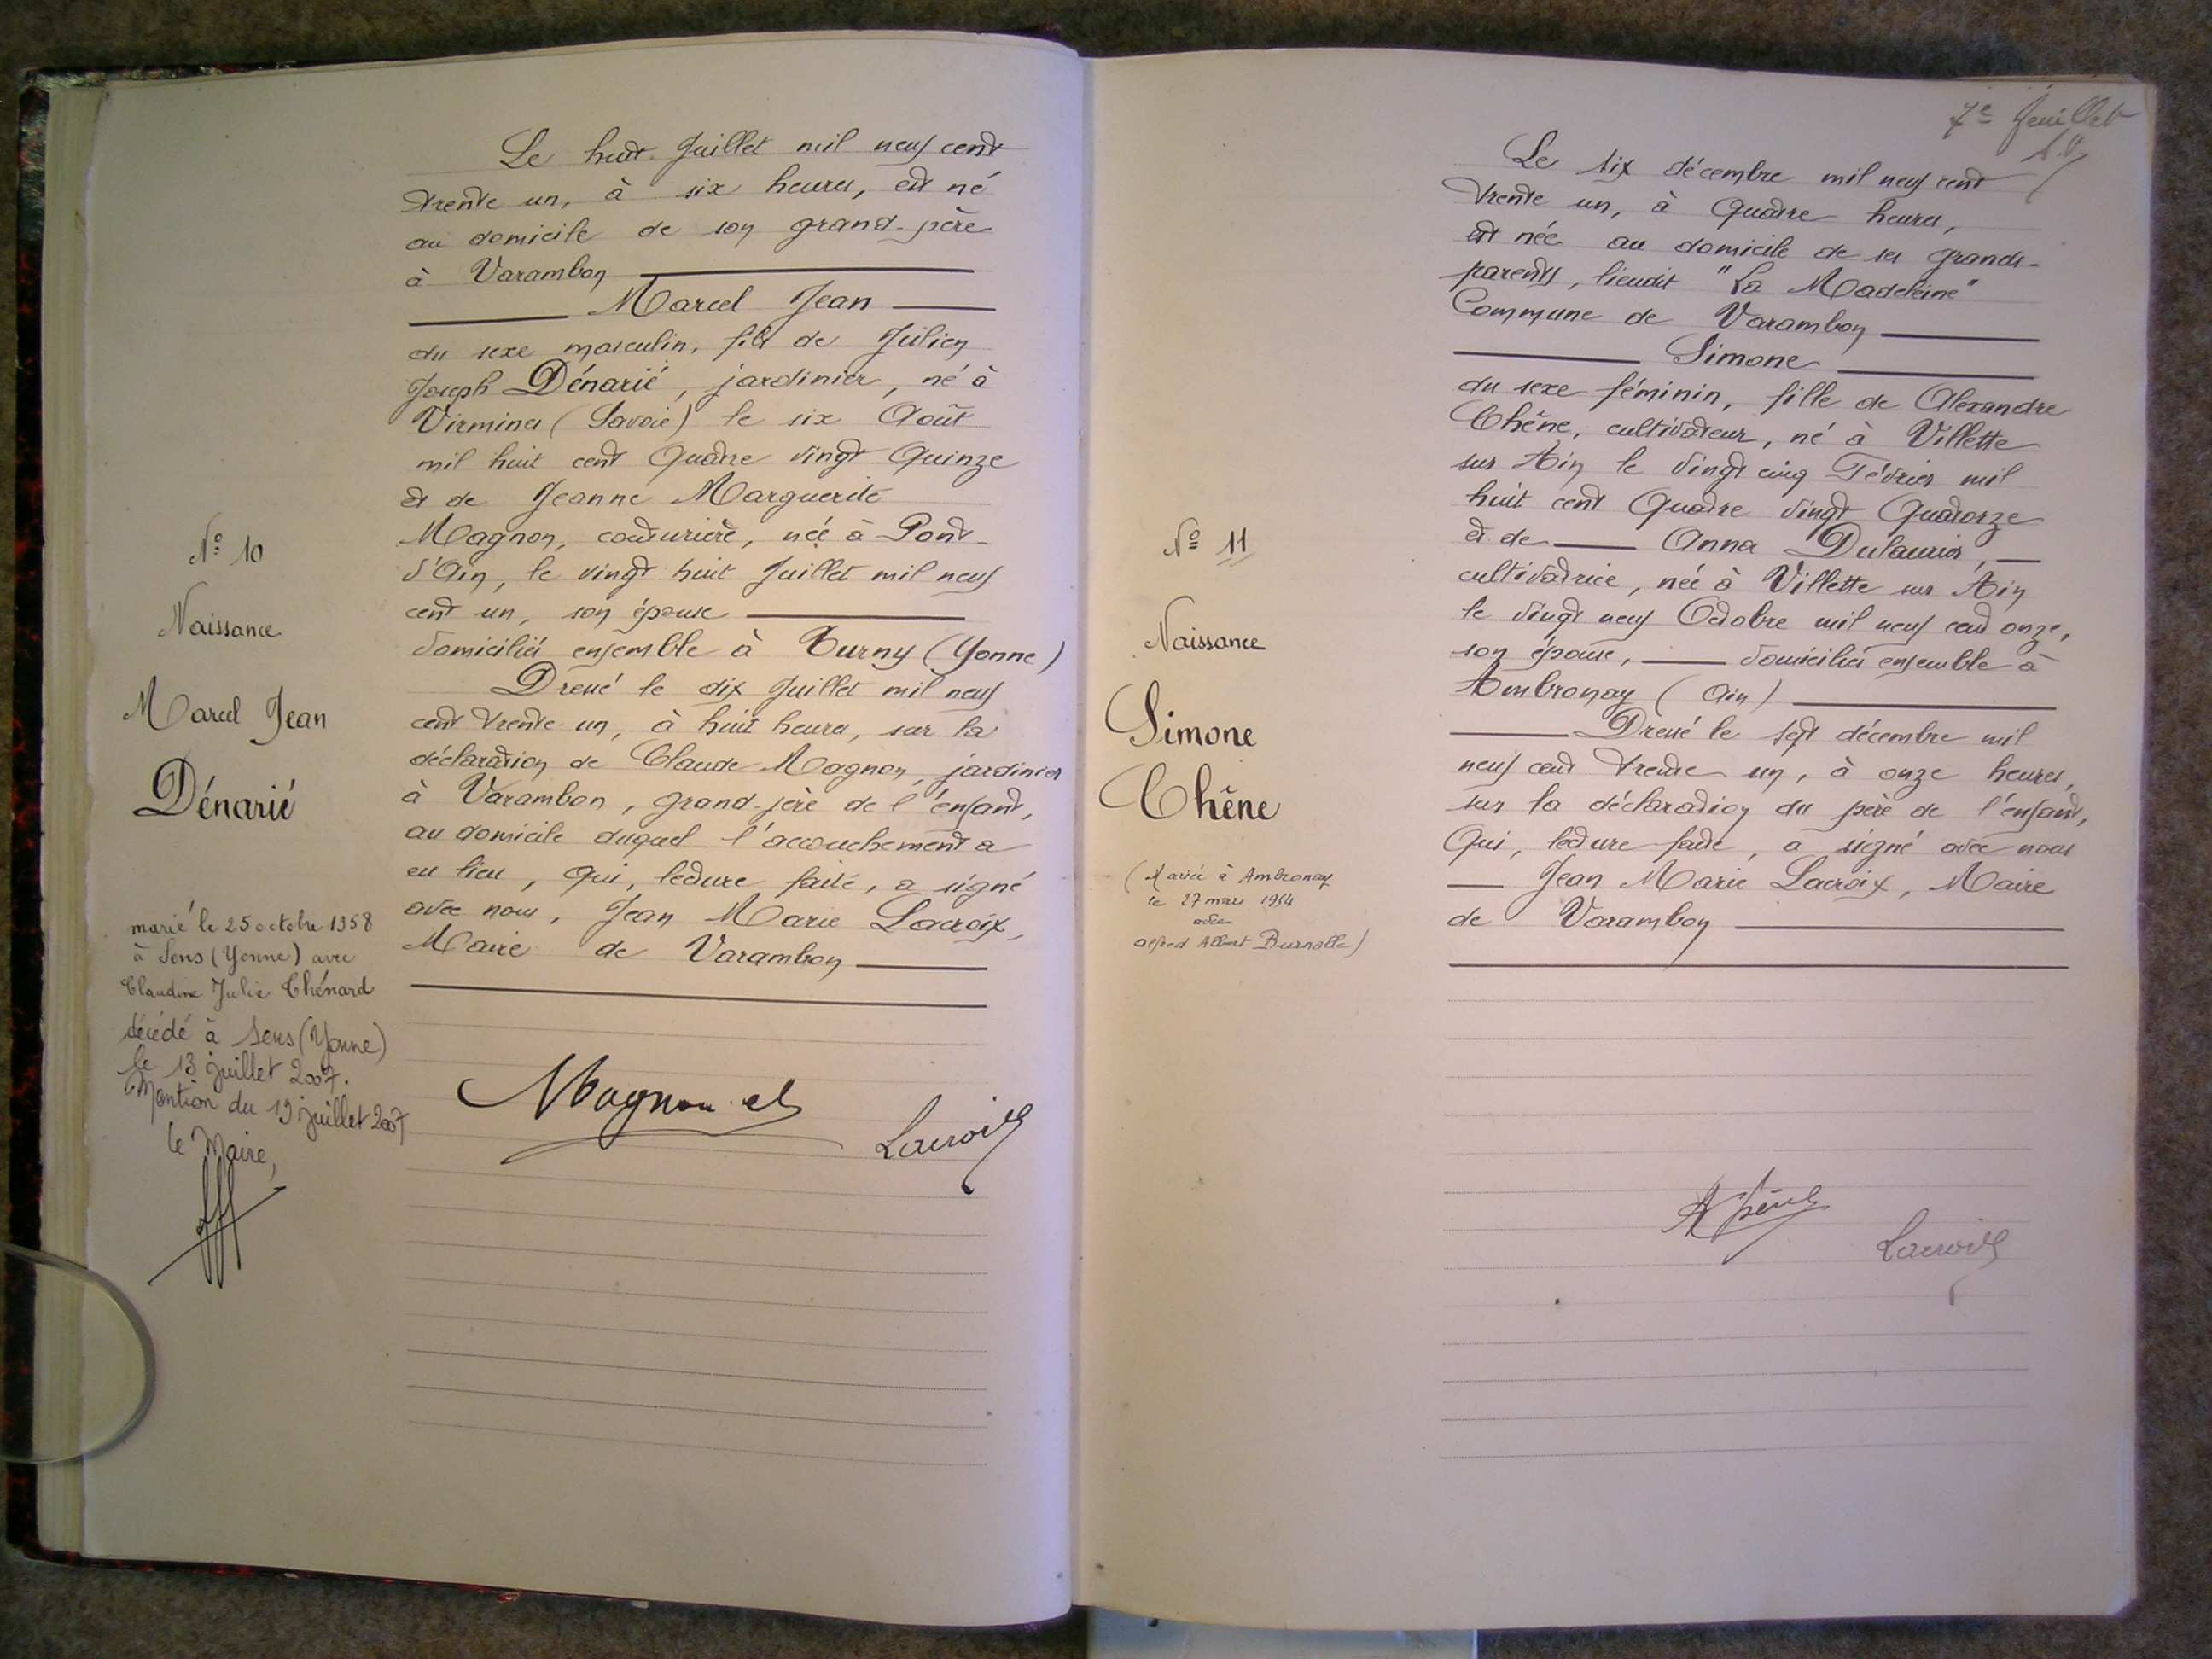 Le huit Juillet mil neuf cent
trente un, à six heures, est né
au domicile de son grand-père
à Varambon
Marcel Jean
du sexe masculin, fils de Julien
Joseph Dénarié, jardinier, né à
(Savoie) le six Août
mil huit cent quatre vingt quinze
et de Jeanne Marguerite
Magnon, couturière, née à Pont-
d'Ain, le vingt huit Juillet mil neuf
cent un, son épouse
domiciliés ensemble à Turny (Yonne)
Dressé le dix Juillet mil neuf
cent trente un, à huit heures, sur la
déclaration de Claude Magnon, jardinier
à Varambon, grand-père de l'enfant,
au domicile duquel l'accouchement a
eu lieu, qui, lecture faite, a signé
avec nous, Jean Marie Lacroix,
Maire de Varambon
Magnon
Lacroix
No 10
Naissance
Marcel Jean
Dénarié
marié le 25 octobre 1958
à Sens (Yonne) avec
Claudine Julie Chénard
décédé à Sens (Yonne)
le 13 juillet 2007.
Mention du 19 juillet 2007
le Maire,
7e feuillet
Le six décembre mil neuf cent
trente un, à quatre heures,
est née au domicile de ses grands-
parents, lieudit "La Madeleine"
Commune de Varambon
Simone
du sexe féminin, fille de Alexandre
Chêne, cultivateur, né à Villette
sur Ain le vingt cinq Février mil
huit cent quatre vingt quatorze
et de Anna Dulaurier,
cultivatrice, née à Villette sur Ain
le vingt neuf Octobre mil neuf cent onze,
son épouse, domiciliés ensemble à
Ambronay (Ain)
Dressé le sept décembre mil
neuf cent trente un, à onze heures,
sur la déclaration du père de l'enfant,
qui, lecture faite, a signé avec nous
Jean Marie Lacroix, Maire
de Varambon
A Chêne
Lacroix
No 11
Naissance
Simone
Chêne
(Mariée à Ambronay
le 27 mars 1954
avec
Alfred Albert)